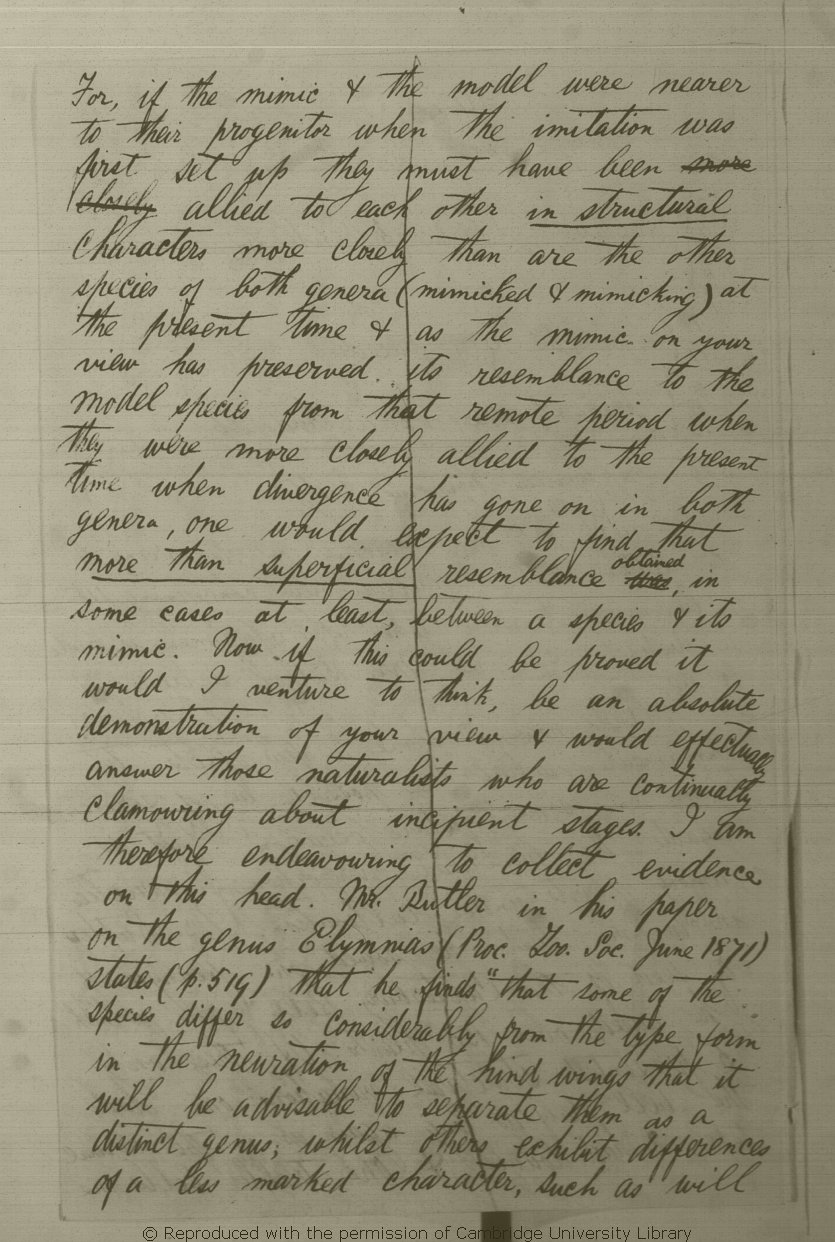 For, if the mimic & the model were nearer
to their progenitor when the imitation was
first set up they must have been more
closely allied to each other in structural
characters more closely than are the other
species of both genera (mimicked & mimicking) at
the present time & as the mimic on your
view has preserved its resemblance to the
model species from that remote period when
they were more closely allied to the present
time when divergence has gone on in both
genera, one would expect to find that
more than superficial resemblance obtained, in
some cases at least, between a species & its
mimic. Now if this could be proved it
would I venture to think, be an absolute
demonstration of your view & would effectually
answer those naturalists who are continually
clamouring about incipient stages. I am
therefore endeavouring to collect evidence
on this head. Mr. Butler in his paper
on the genus Elymnias (Proc. Zoo. Soc. June 1871)
states (p. 519) that he finds "that some of the
species differ so considerably from the type form
in the neuration of the hind wings that it
will be advisable to separate them as a
distinct genus; whilst others exhibit differences
of a less marked character, such as will
© Reproduced with the permission of Cambridge University Library